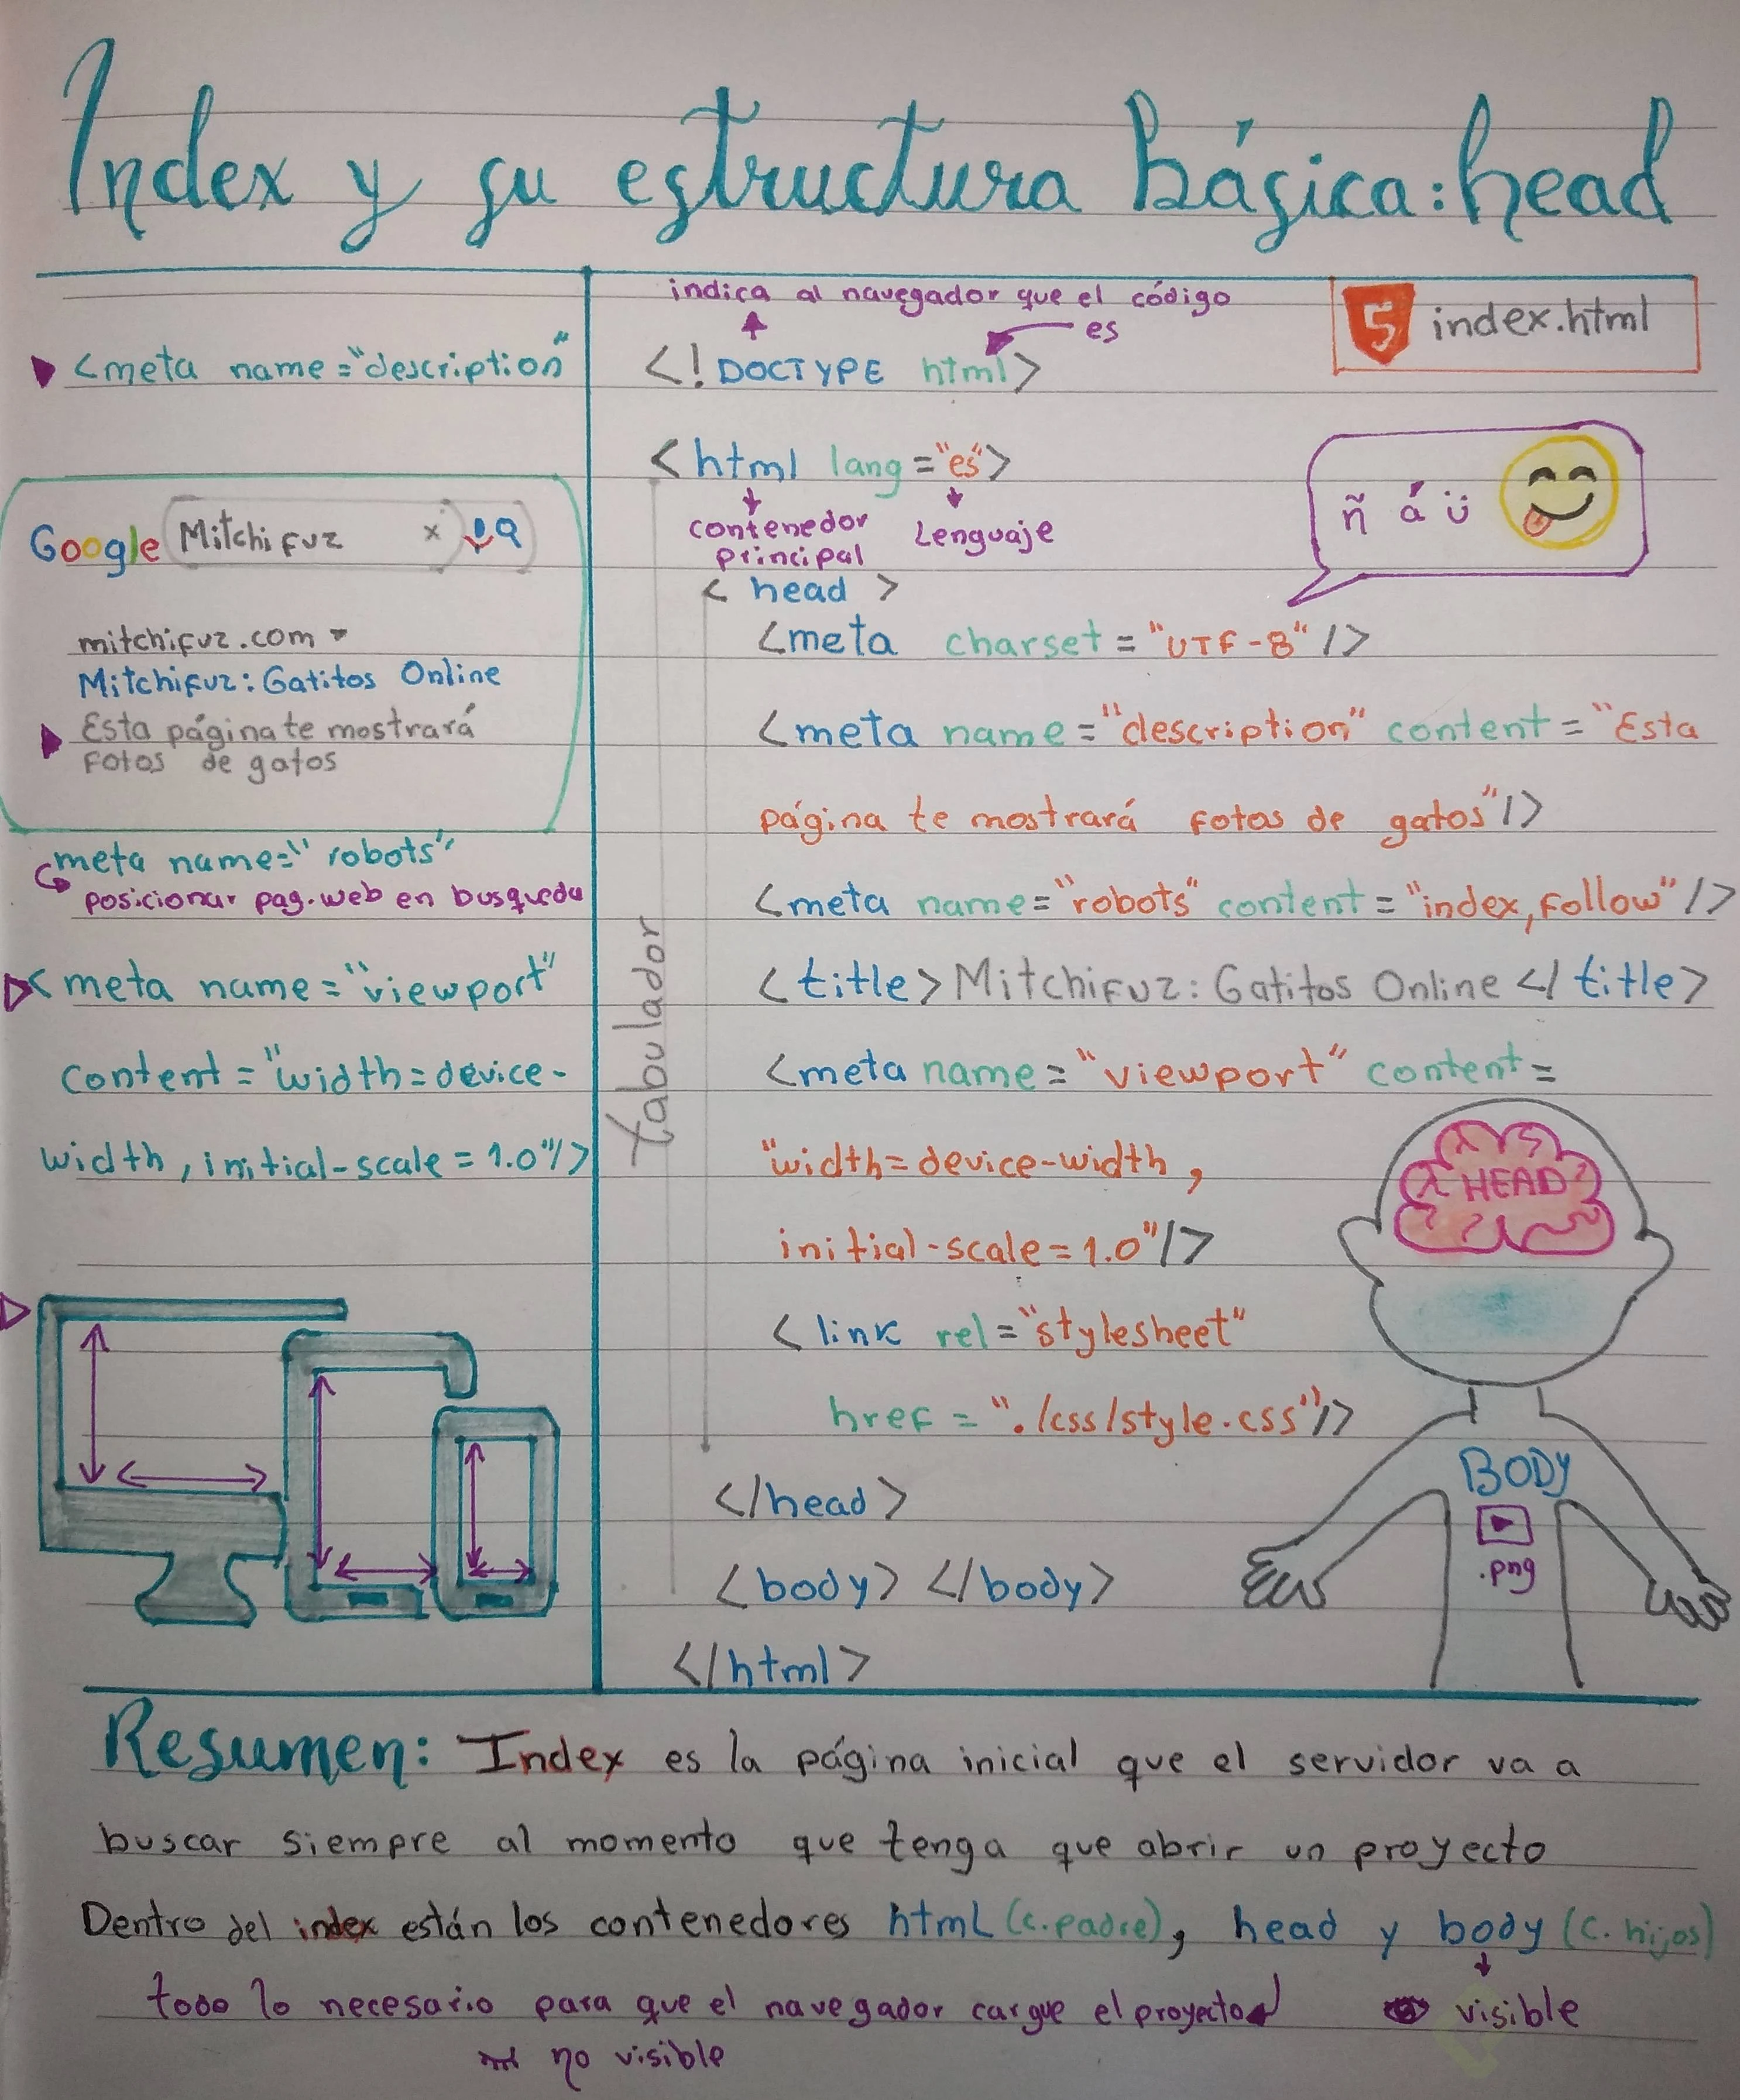 Index y su estructura básica: head
<meta name="description"
Google Mitchifuz x
mitchifuz.com
Mitchifuz: Gatitos Online
Esta página te mostrará
fotos de gatos
meta name="robots"
posicionar pag. web en busqueda
<meta name="viewport"
content="width=device-
width, initial-scale=1.0"/>
indica al navegador que el código
es
<!DOCTYPE html>
5 index.html
<html lang="es">
contenedor
principal
Lenguaje
ñ á ü
<head>
<meta charset="UTF-8"/>
<meta name="description" content="Esta
página te mostrará fotos de gatos"/>
<meta name="robots" content="index,follow"/>
<title>Mitchifuz: Gatitos Online</title>
<meta name="viewport" content=
"width=device-width,
initial-scale=1.0"/>
<link rel="stylesheet"
href="./css/style.css"/>
</head>
<body></body>
</html>
Tabulador
HEAD
BODY
.png
Resumen: Index es la página inicial que el servidor va a
buscar siempre al momento que tenga que abrir un proyecto
Dentro del index están los contenedores html (c.padre), head y body (c. hijos)
todo lo necesario para que el navegador cargue el proyecto
visible
no visible